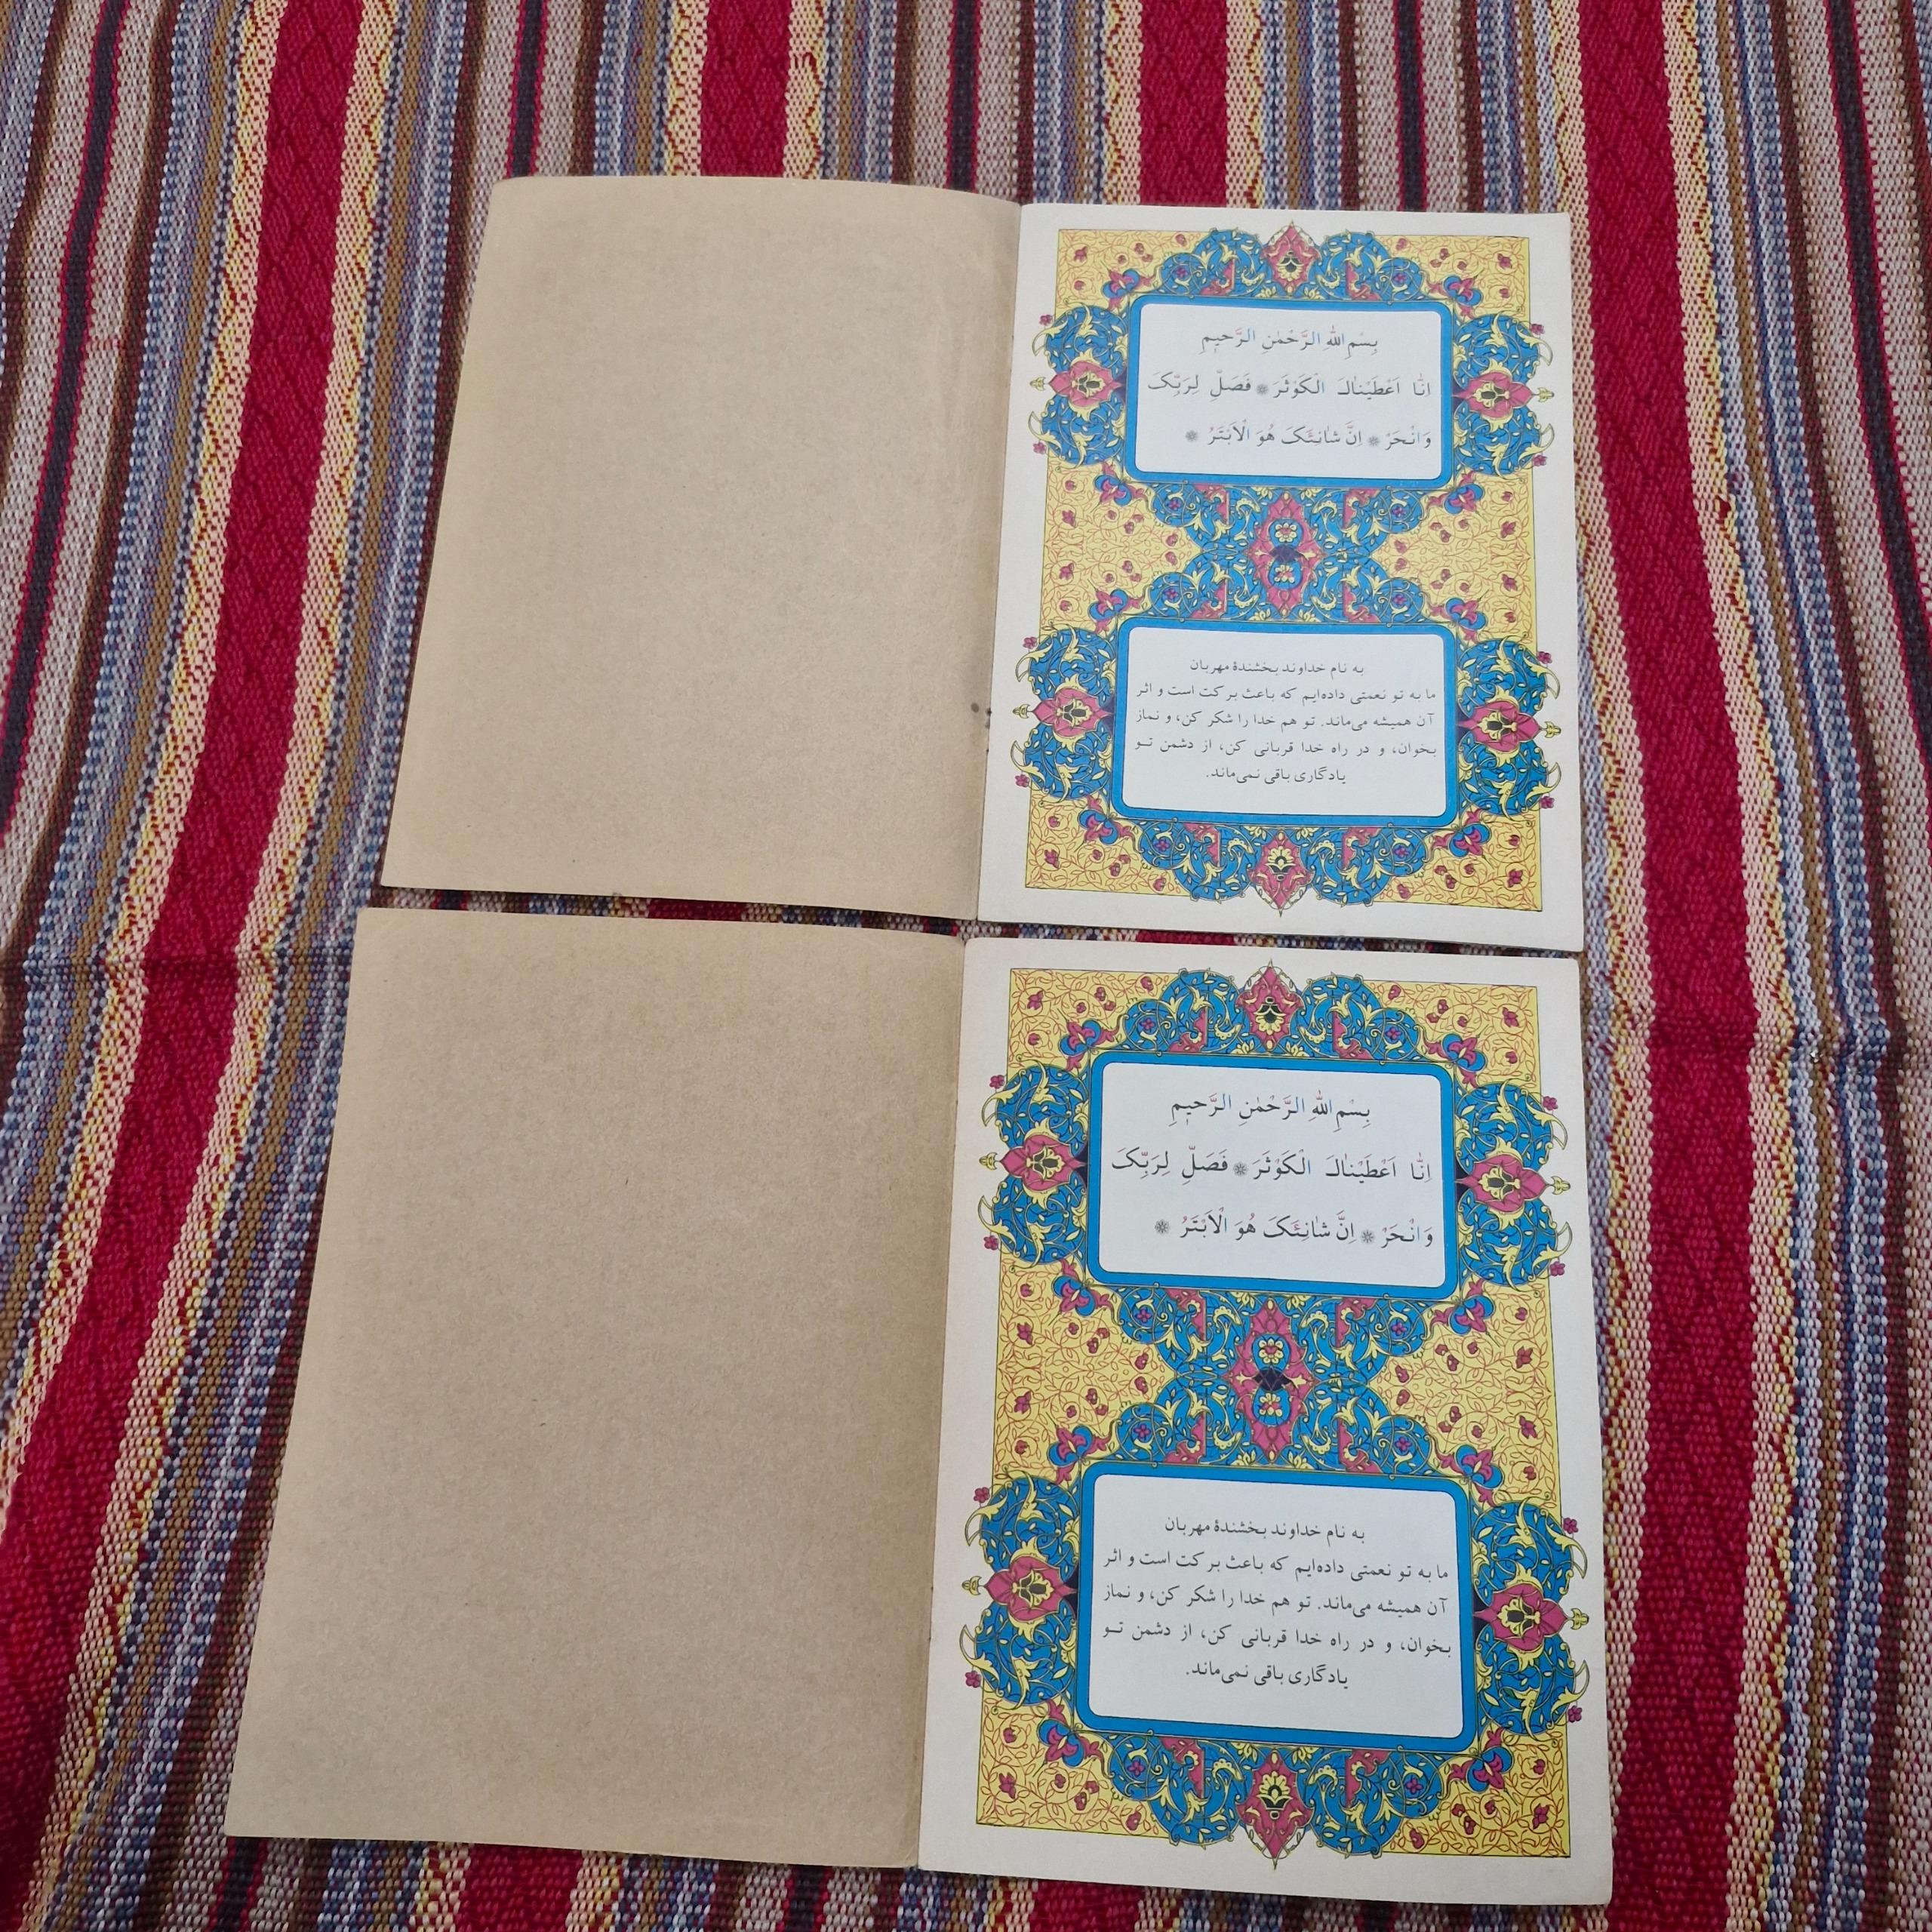 بِسْمِ اللّٰهِ الرَّحْمٰنِ الرَّحیمِ
اِنّٰا اَعْطَیْنٰاکَ الْکَوْثَرَ * فَصَلِّ لِرَبِّکَ
وَانْحَرْ * اِنَّ شٰانِئَکَ هُوَ الْاَبْتَرُ *
به نام خداوند بخشندهٔ مهربان
ما به تو نعمتی داده‌ایم که باعث برکت است و اثر
آن همیشه می‌ماند. تو هم خدا را شکر کن، و نماز
بخوان، و در راه خدا قربانی کن، از دشمن تو
یادگاری باقی نمی‌ماند.
بِسْمِ اللّٰهِ الرَّحْمٰنِ الرَّحیمِ
اِنّٰا اَعْطَیْنٰاکَ الْکَوْثَرَ * فَصَلِّ لِرَبِّکَ
وَانْحَرْ * اِنَّ شٰانِئَکَ هُوَ الْاَبْتَرُ *
به نام خداوند بخشندهٔ مهربان
ما به تو نعمتی داده‌ایم که باعث برکت است و اثر
آن همیشه می‌ماند. تو هم خدا را شکر کن، و نماز
بخوان، و در راه خدا قربانی کن، از دشمن تو
یادگاری باقی نمی‌ماند.